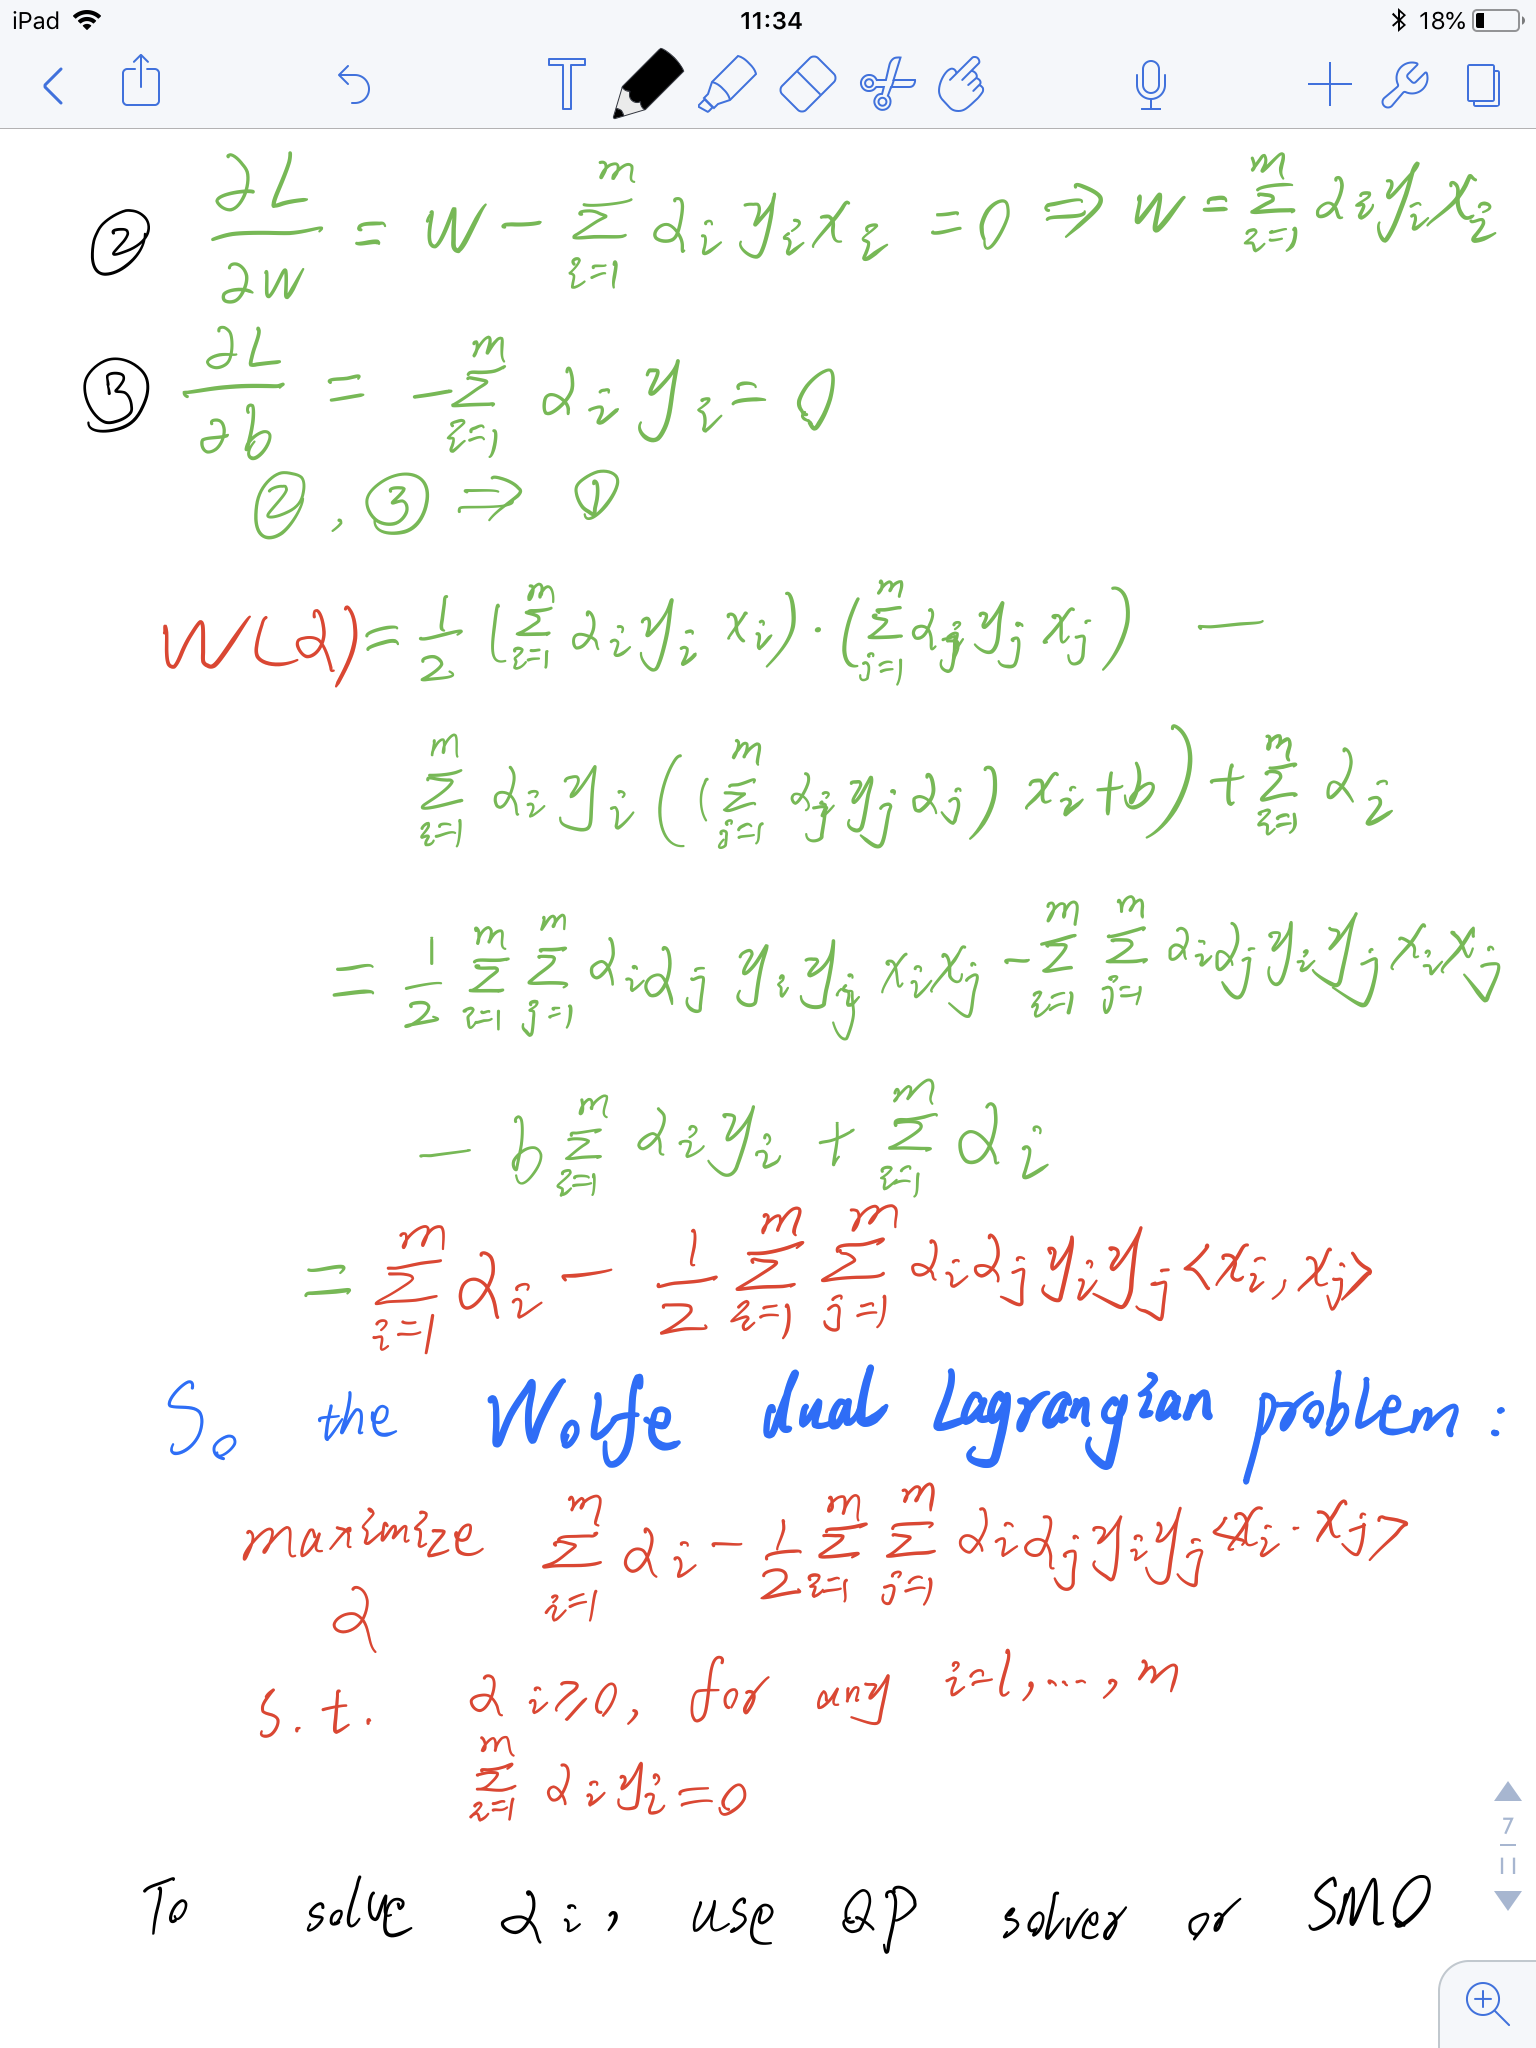 iPad 11:34 18%
② ∂L/∂w = w - Σ_{i=1}^{m} α_i y_i x_i = 0 ⇒ w = Σ_{i=1}^{m} α_i y_i x_i
③ ∂L/∂b = -Σ_{i=1}^{m} α_i y_i = 0
②, ③ ⇒ ①
W(α) = 1/2 (Σ_{i=1}^{m} α_i y_i x_i) · (Σ_{j=1}^{m} α_j y_j x_j) -
Σ_{i=1}^{m} α_i y_i ((Σ_{j=1}^{m} α_j y_j α_j) x_i + b) + Σ_{i=1}^{m} α_i
= 1/2 Σ_{i=1}^{m} Σ_{j=1}^{m} α_i α_j y_i y_j x_i x_j - Σ_{i=1}^{m} Σ_{j=1}^{m} α_i α_j y_i y_j x_i x_j
- b Σ_{i=1}^{m} α_i y_i + Σ_{i=1}^{m} α_i
= Σ_{i=1}^{m} α_i - 1/2 Σ_{i=1}^{m} Σ_{j=1}^{m} α_i α_j y_i y_j <x_i, x_j>
So the Wolfe dual Lagrangian problem:
maximize Σ_{i=1}^{m} α_i - 1/2 Σ_{i=1}^{m} Σ_{j=1}^{m} α_i α_j y_i y_j <x_i · x_j>
α
s.t. α_i ≥ 0, for any i=1, ..., m
Σ_{i=1}^{m} α_i y_i = 0
7
11
To solve α_i, use QP solver or SMO